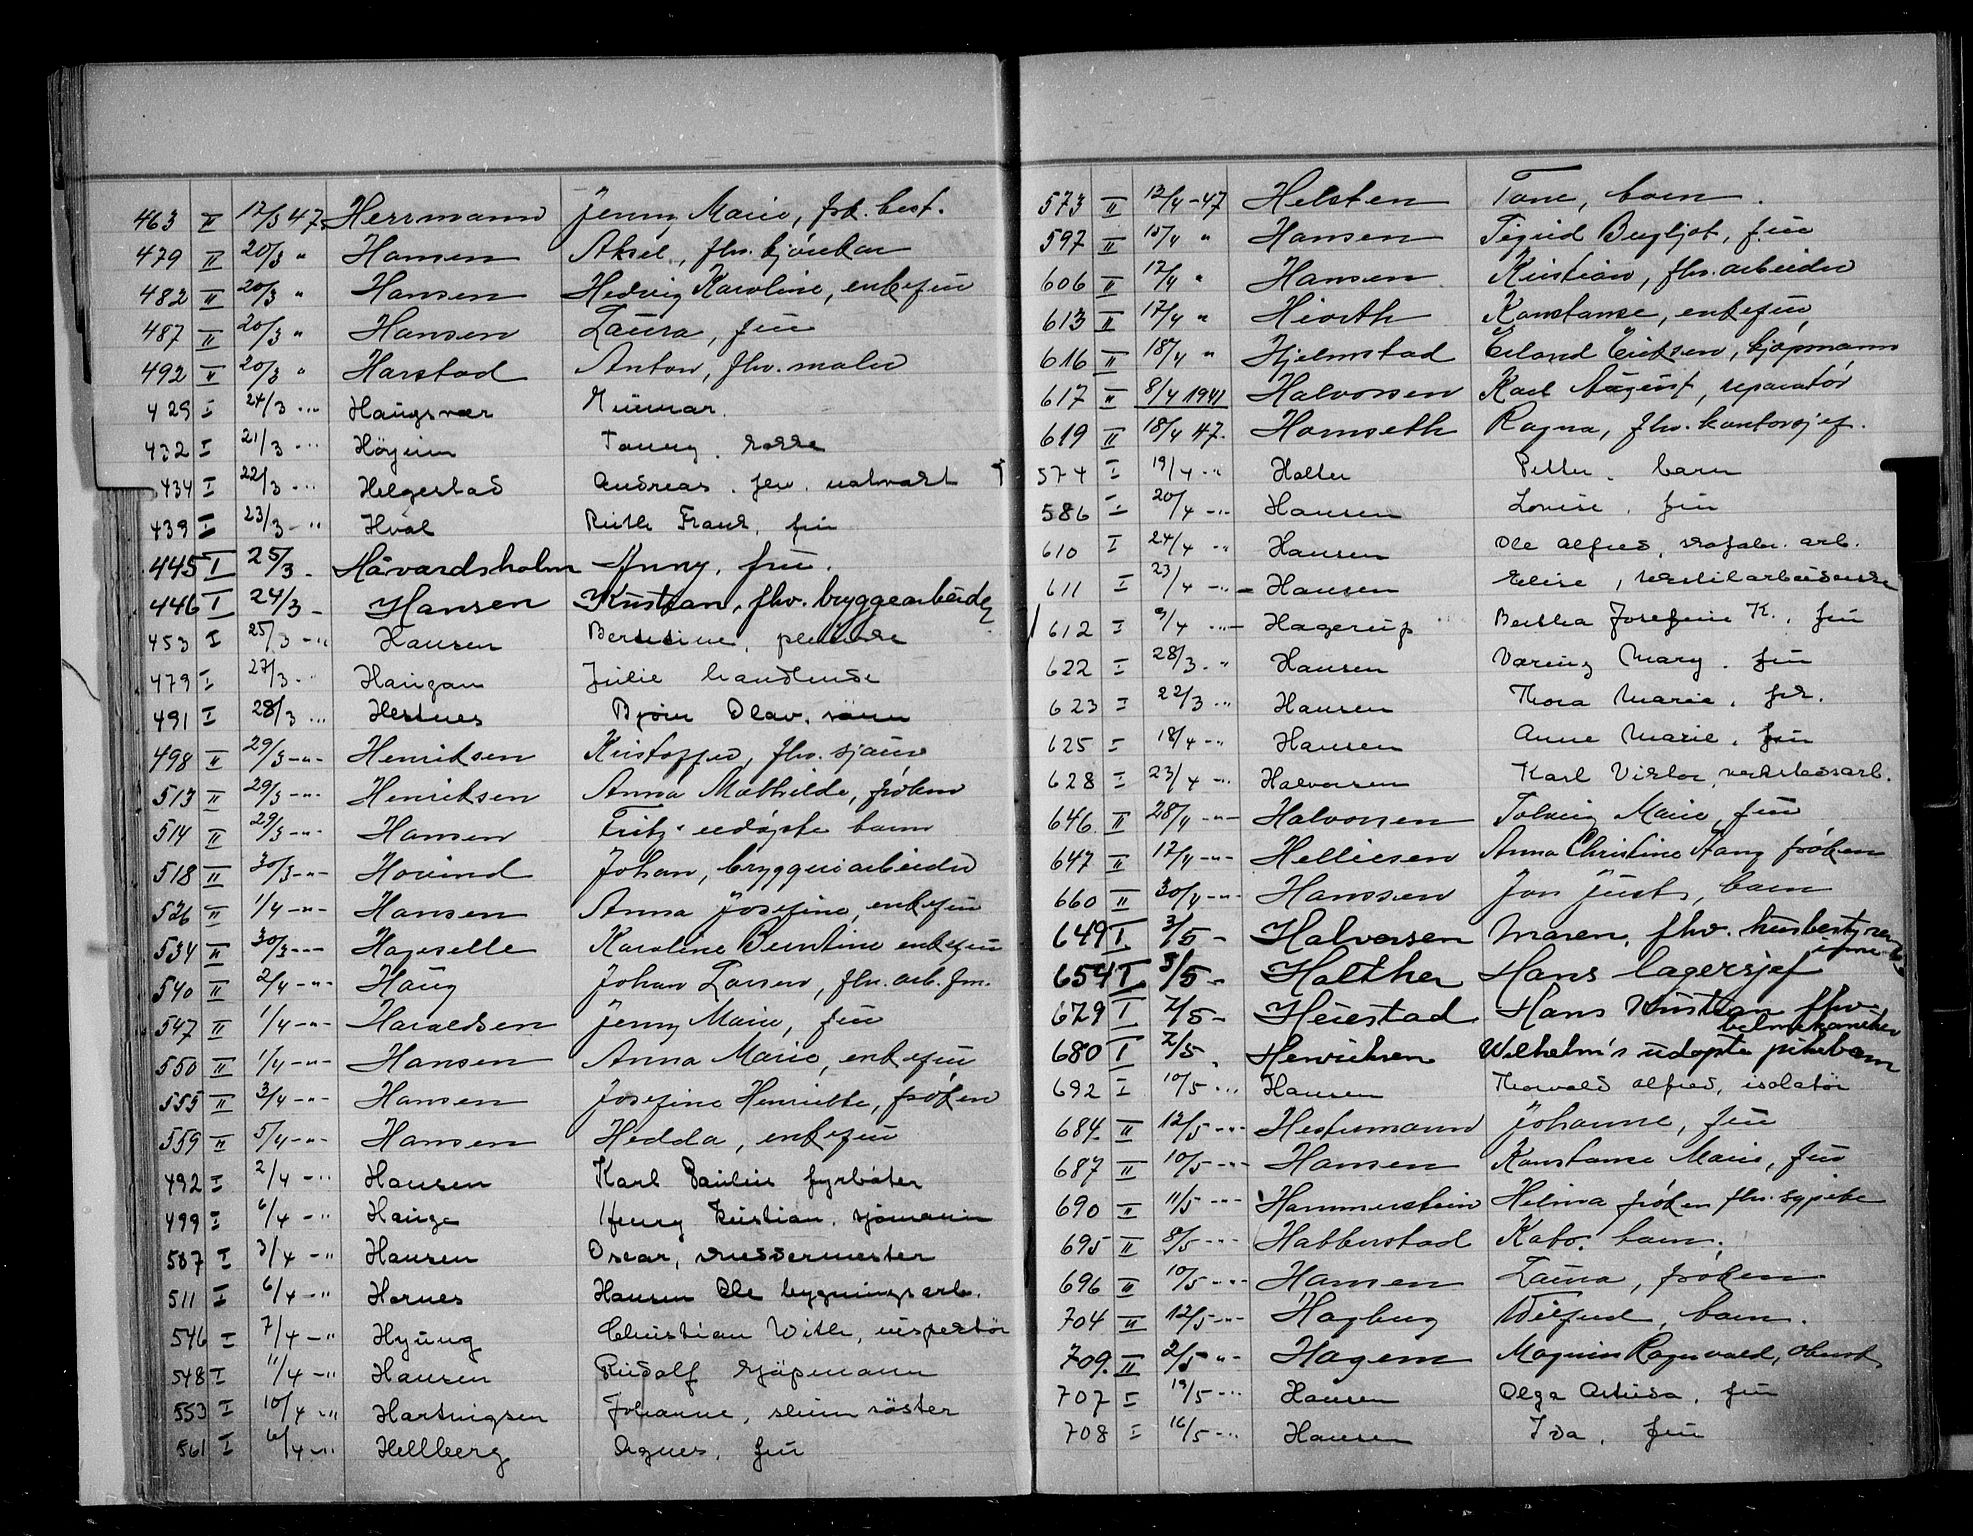 463 II 17/3 47 Herrmann Jenny Marie, frk. best.
479 II 20/3 " Hansen Aksel, fhv. kjörekar
482 II 20/3 " Hansen Hedvig Karoline, enkefru
487 II 20/3 " Hansen Laura, fru
492 II 20/3 " Harstad Anton, fhv. maler
429 I 24/3 -"- Haugsvær Gunnar.
432 I 21/3 -"- Höyein Fanny, kokke
434 I 22/3 -"- Helgestad Andreas, fhv. natvakt
439 I 23/3 -"- Hval Ruth Frank, fru
445 I 25/3 - Håvardsholm Anny, fru.
446 I 24/3 - Hansen Kristian, fhv. bryggearbeider
453 I 25/3 -"- Hansen Bertine, pleierske
479 I 27/3 -"- Haugan Julie handlende
491 I 28/3 -"- Hestnes Bjørn Olav, sønn
498 II 29/3 -"- Henriksen Kristoffer, fhv. sjauer
513 II 29/3 -"- Henriksen Anna Mathilde, fröken
514 II 29/3 -"- Hansen Fritz' udöpte barn
518 II 30/3 -"- Hovind Johan, bryggeriarbeider
526 II 1/4 -"- Hansen Anna Josefine, enkefru
534 II 30/3 -"- Hageselle Karoline Berntine enkefru
540 II 2/4 -"- Haug Johan Larsen, fhv. arb. fm.
547 II 1/4 -"- Haraldsen Jenny Marie, fru
550 II 1/4 -"- Hansen Anna Marie, enkefru
555 II 3/4 -"- Hansen Josefine Henriette, fröken
559 II 5/4 -"- Hansen Hedda, enkefru
492 I 2/4 -"- Hansen Karl Paulius fyrböter
499 I 6/4 -"- Hauge Henry Kristian, sjömann
587 I 3/4 -"- Hansen Oscar, skreddermester
511 I 6/4 -"- Hornes Hansen Ole bygningsarb.
546 I 7/4 -"- Hyung Christian With, inspektör
548 I 11/4 -"- Hansen Rudolf kjöpmann
553 I 10/4 -"- Hartvigsen Johanne, söster
561 I 6/4 -"- Hellberg Agnes, fru
573 II 12/4 -47 Helsten Tone, barn.
597 II 15/4 " Hansen Sigrid Bergljot, fru
606 II 12/4 " Hansen Kristian, fhv. arbeider
613 II 17/4 " Hiorth Konstanse, enkefru
616 II 18/4 " Hjelmstad Erland Eriksen, kjöpmann
617 II 8/4 1941 Halvorsen Karl August, reparatör
619 II 18/4 47. Hamseth Ragna, fhv. kontorsjef.
574 I 19/4 -"- Holter Petter, barn
586 I 20/4 -"- Hansen Lovise, fru
610 I 24/4 -"- Hansen Ole Alfred, arb.
611 I 23/4 -"- Hansen Elise, tekstilarbeiderske
612 I 9/4 -"- Hagerup Bertha Josefine K., fru
622 I 28/3 -"- Hansen Mary, fru
623 I 22/3 -"- Hansen Thora Marie, frk.
625 I 18/4 -"- Hansen Anne Marie, fru
628 I 23/4 -"- Halvorsen Karl Viktor, verkstedsarb.
646 II 28/4 -"- Halvorsen Solveig Marie, fru
647 II 17/4 -"- Helliesen Anna Christine Aang fröken
660 II 30/4 -"- Hanssen Jon Just, barn
649 I 3/5 - Halvorsen Maren, fhv. husbestyrerinne
654 I 5/5 - Holther Hans lagersjef
679 I 2/5 - Heiestad Hans Kristian fhv.
bilmekaniker
680 I 2/5 - Henriksen Wilhelm's udöpte pikebarn
692 I 10/5 -"- Hansen Thorvald Alfred, isolatör
684. II 12/5 -"- Hestermann Johanne, fru
687 II 10/5 -"- Hansen Konstanse Marie, fru
690 II 11/5 -"- Hammerstein Helma fröken fhv. sypike
695 II 8/5 -"- Habberstad Kato. barn.
696 II 10/5 -"- Hansen Laura, fröken
704 II 12/5 -"- Hagberg Wilfred, barn.
709. II 2/5 -"- Hagem Magnus Ragnvald, Oberst
707 I 19/5 -"- Hansen Olga Artusa, fru
708 I 16/5 -"- Hansen Ida, fru